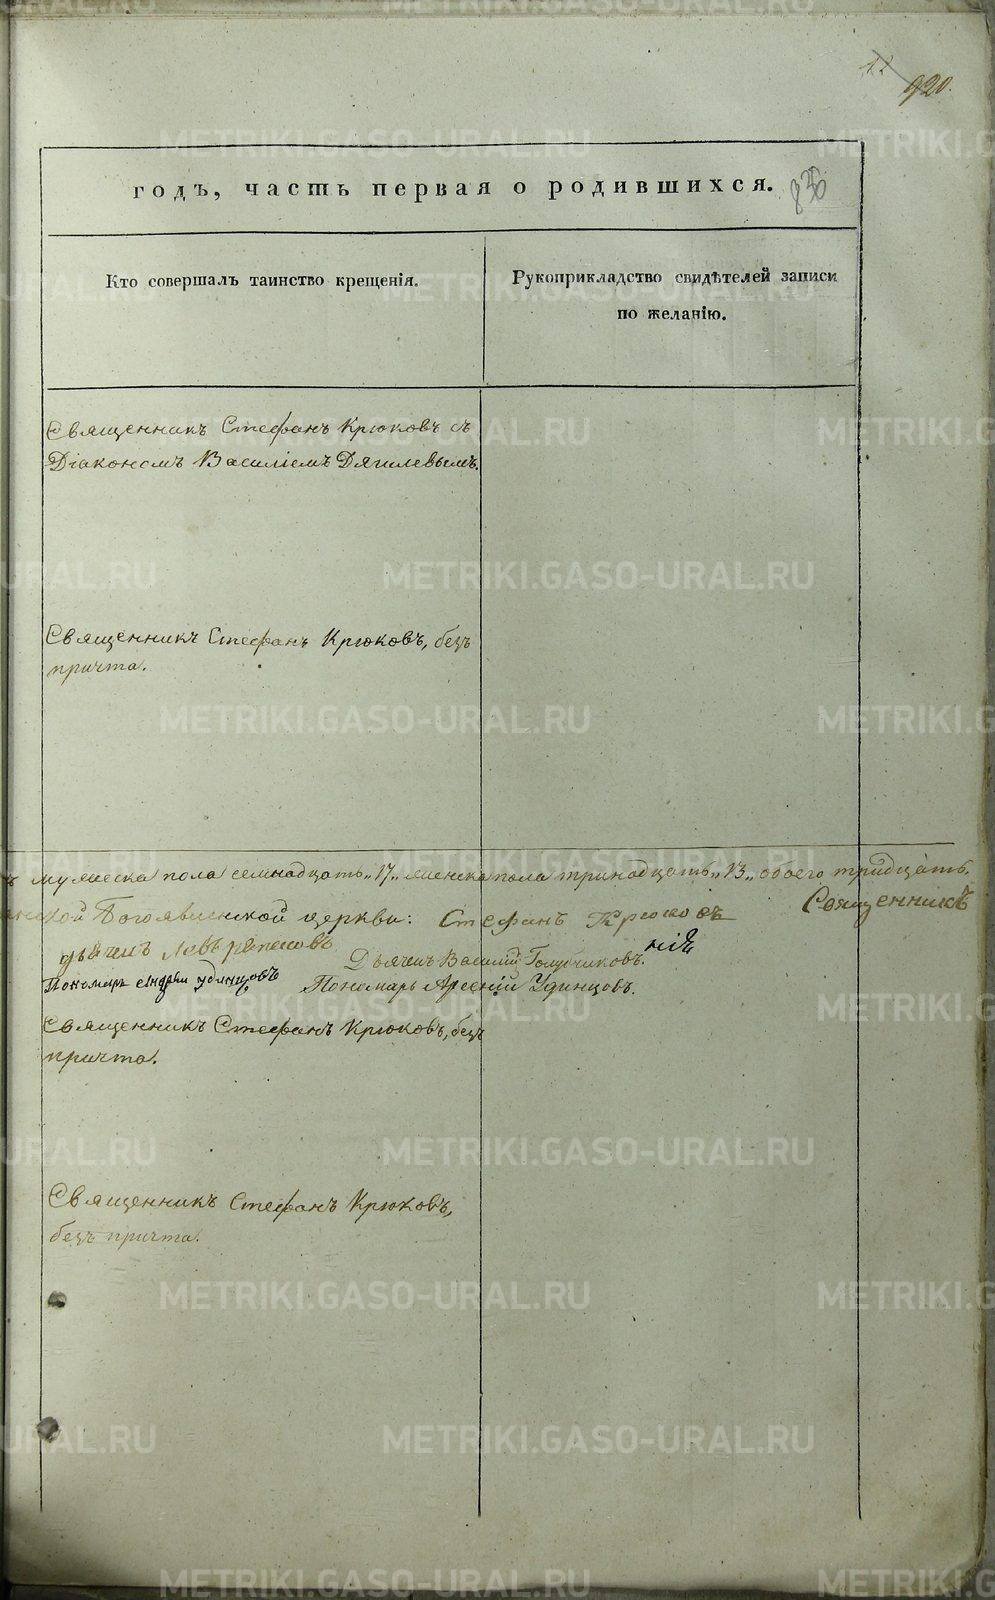 920.
годъ, часть первая о родившихся.
Кто совершалъ таинство крещенія.
Рукоприкладство свидѣтелей записи
по желанію.
Священникъ Стефанъ Крюковъ съ
Діакономъ Василіемъ Дягилевымъ.
Священникъ Стефанъ Крюковъ, безъ
причта.
мужеска пола семнадцать „17„ женска пола тринадцать „13„ обоего тридцать.
Богоявленской церкви: Стефанъ Крюковъ Священникъ
Дьячекъ Василій Голубчиковъ.
Пономарь Андрей Удинцовъ Пономарь Арсеній Удинцовъ.
Священникъ Стефанъ Крюковъ, безъ
причта.
Священникъ Стефанъ Крюковъ,
безъ причта.
METRIKI.GASO-URAL.RU